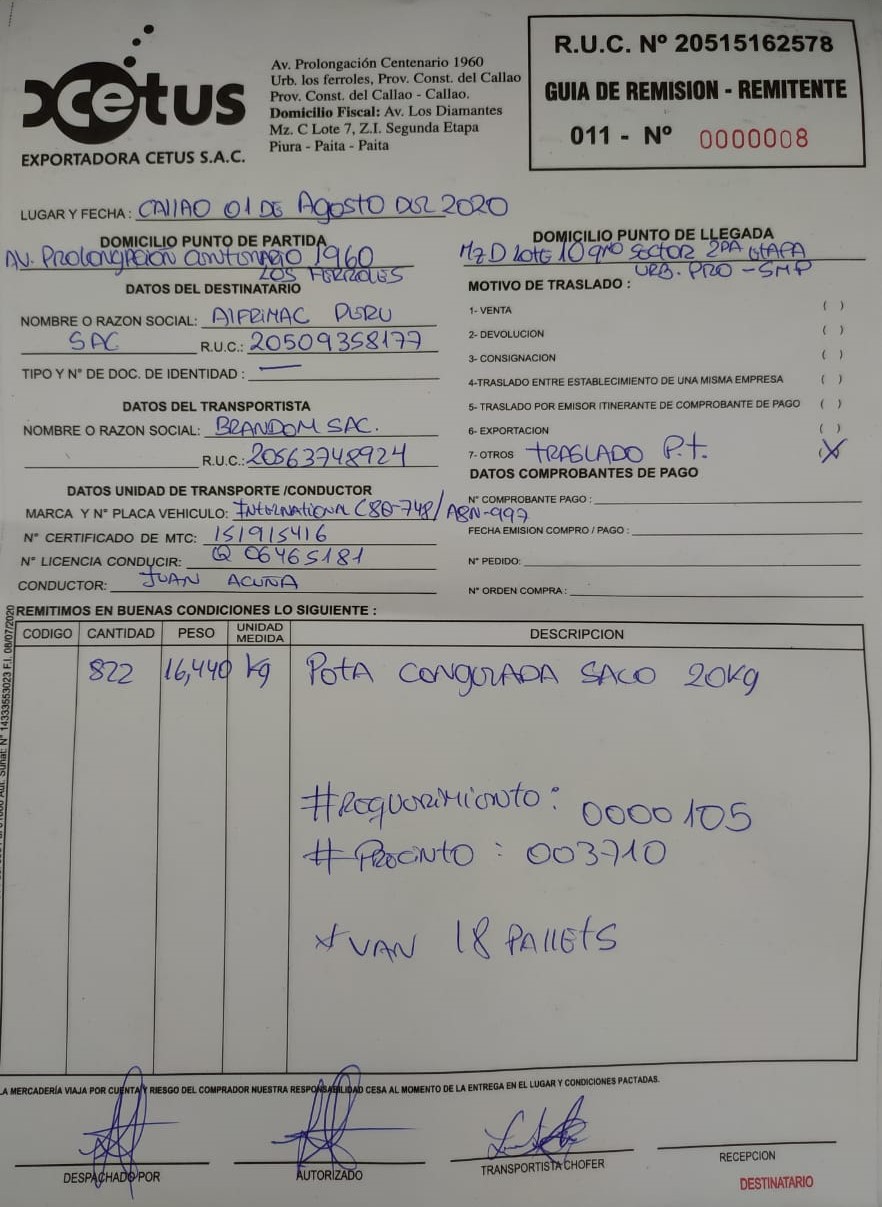 Cetus
EXPORTADORA CETUS S.A.C.
Av. Prolongación Centenario 1960
Urb. los ferroles, Prov. Const. del Callao
Prov. Const. del Callao - Callao.
Domicilio Fiscal: Av. Los Diamantes
Mz. C Lote 7, Z.I. Segunda Etapa
Piura - Paita - Paita
R.U.C. Nº 20515162578
GUIA DE REMISION - REMITENTE
011 - Nº 0000008
LUGAR Y FECHA : CAllAO 01 DE Agosto DEL 2020
DOMICILIO PUNTO DE PARTIDA
AV. PROlongACION CENTENARIO 1960
LOS FERROLES
DOMICILIO PUNTO DE LLEGADA
MzD LOTE 10 9no SECTOR 2DA ETAPA
URB. PRO - SMP
DATOS DEL DESTINATARIO
NOMBRE O RAZON SOCIAL: AIFRIMAC PERU
SAC R.U.C.: 20509358177
TIPO Y N° DE DOC. DE IDENTIDAD : —
DATOS DEL TRANSPORTISTA
NOMBRE O RAZON SOCIAL: BRANDOM SAC.
R.U.C.: 20563748924
DATOS UNIDAD DE TRANSPORTE /CONDUCTOR
MARCA Y N° PLACA VEHICULO: INTERNATIONAL C8Q-748/ABN-997
N° CERTIFICADO DE MTC: 151915416
N° LICENCIA CONDUCIR: Q 06465181
CONDUCTOR: JUAN ACUÑA
MOTIVO DE TRASLADO :
1- VENTA ( )
2- DEVOLUCION ( )
3- CONSIGNACION ( )
4-TRASLADO ENTRE ESTABLECIMIENTO DE UNA MISMA EMPRESA ( )
5- TRASLADO POR EMISOR ITINERANTE DE COMPROBANTE DE PAGO ( )
6- EXPORTACION ( )
7- OTROS TRASLADO P.T. (X)
DATOS COMPROBANTES DE PAGO
N° COMPROBANTE PAGO :
FECHA EMISION COMPRO / PAGO :
N° PEDIDO:
N° ORDEN COMPRA :
REMITIMOS EN BUENAS CONDICIONES LO SIGUIENTE :
CODIGO CANTIDAD PESO UNIDAD MEDIDA DESCRIPCION
822 16,440 kg POTA CONGELADA SACO 20Kg
#Requerimiento : 0000105
# PRECINTO : 003710
* VAN 18 PALLETS
Aut. Sunat: N° 14333553023 F.I. 08/07/2020
LA MERCADERÍA VIAJA POR CUENTA Y RIESGO DEL COMPRADOR NUESTRA RESPONSABILIDAD CESA AL MOMENTO DE LA ENTREGA EN EL LUGAR Y CONDICIONES PACTADAS.
DESPACHADO POR
AUTORIZADO
TRANSPORTISTA CHOFER
RECEPCION
DESTINATARIO